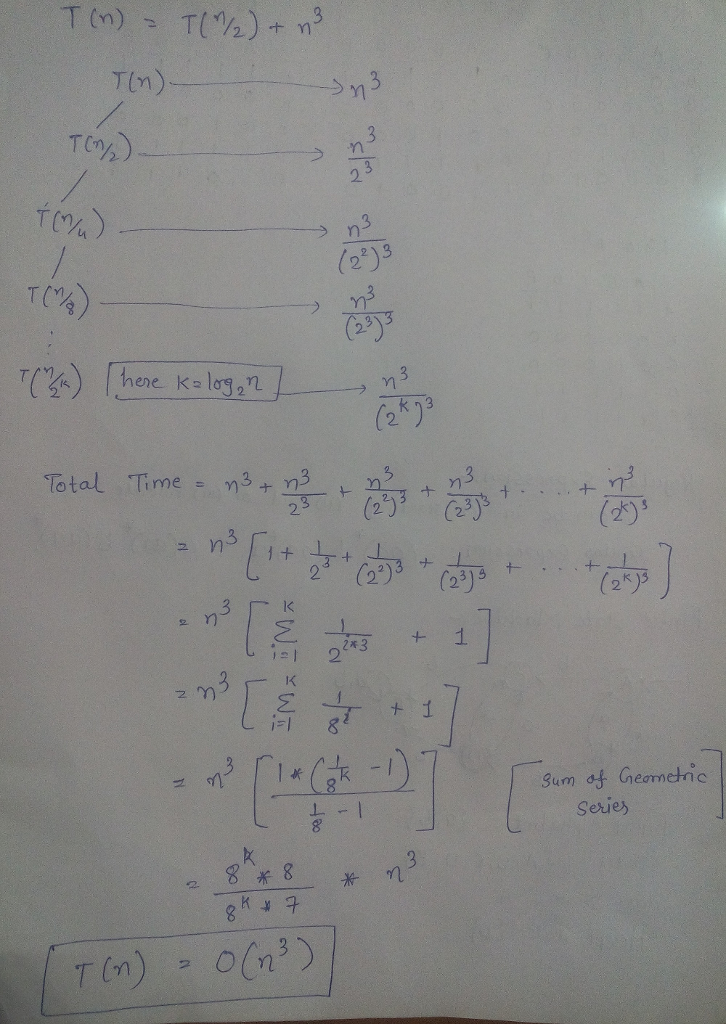 T(n) = T(n/2) + n³
T(n) → n³
T(n/2) → n³/2³
T(n/4) → n³/(2²)³
T(n/8) → n³/(2³)³
⋮
T(n/2ᵏ) here K = log₂n → n³/(2ᴷ)³
Total Time = n³ + n³/2³ + n³/(2²)³ + n³/(2³)³ + .... + n³/(2ᵏ)³
= n³ [1 + 1/2³ + 1/(2²)³ + 1/(2³)³ + ... + 1/(2ᴷ)³]
= n³ [Σ_{i=1}^{K} 1/2^{i*3} + 1]
= n³ [Σ_{i=1}^{K} 1/8^i + 1]
= n³ [1*(1/8ᵏ - 1) / (1/8 - 1)] [Sum of Geometric Series]
= (8ᵏ * 8)/(8ᴷ * 7) * n³
T(n) = O(n³)